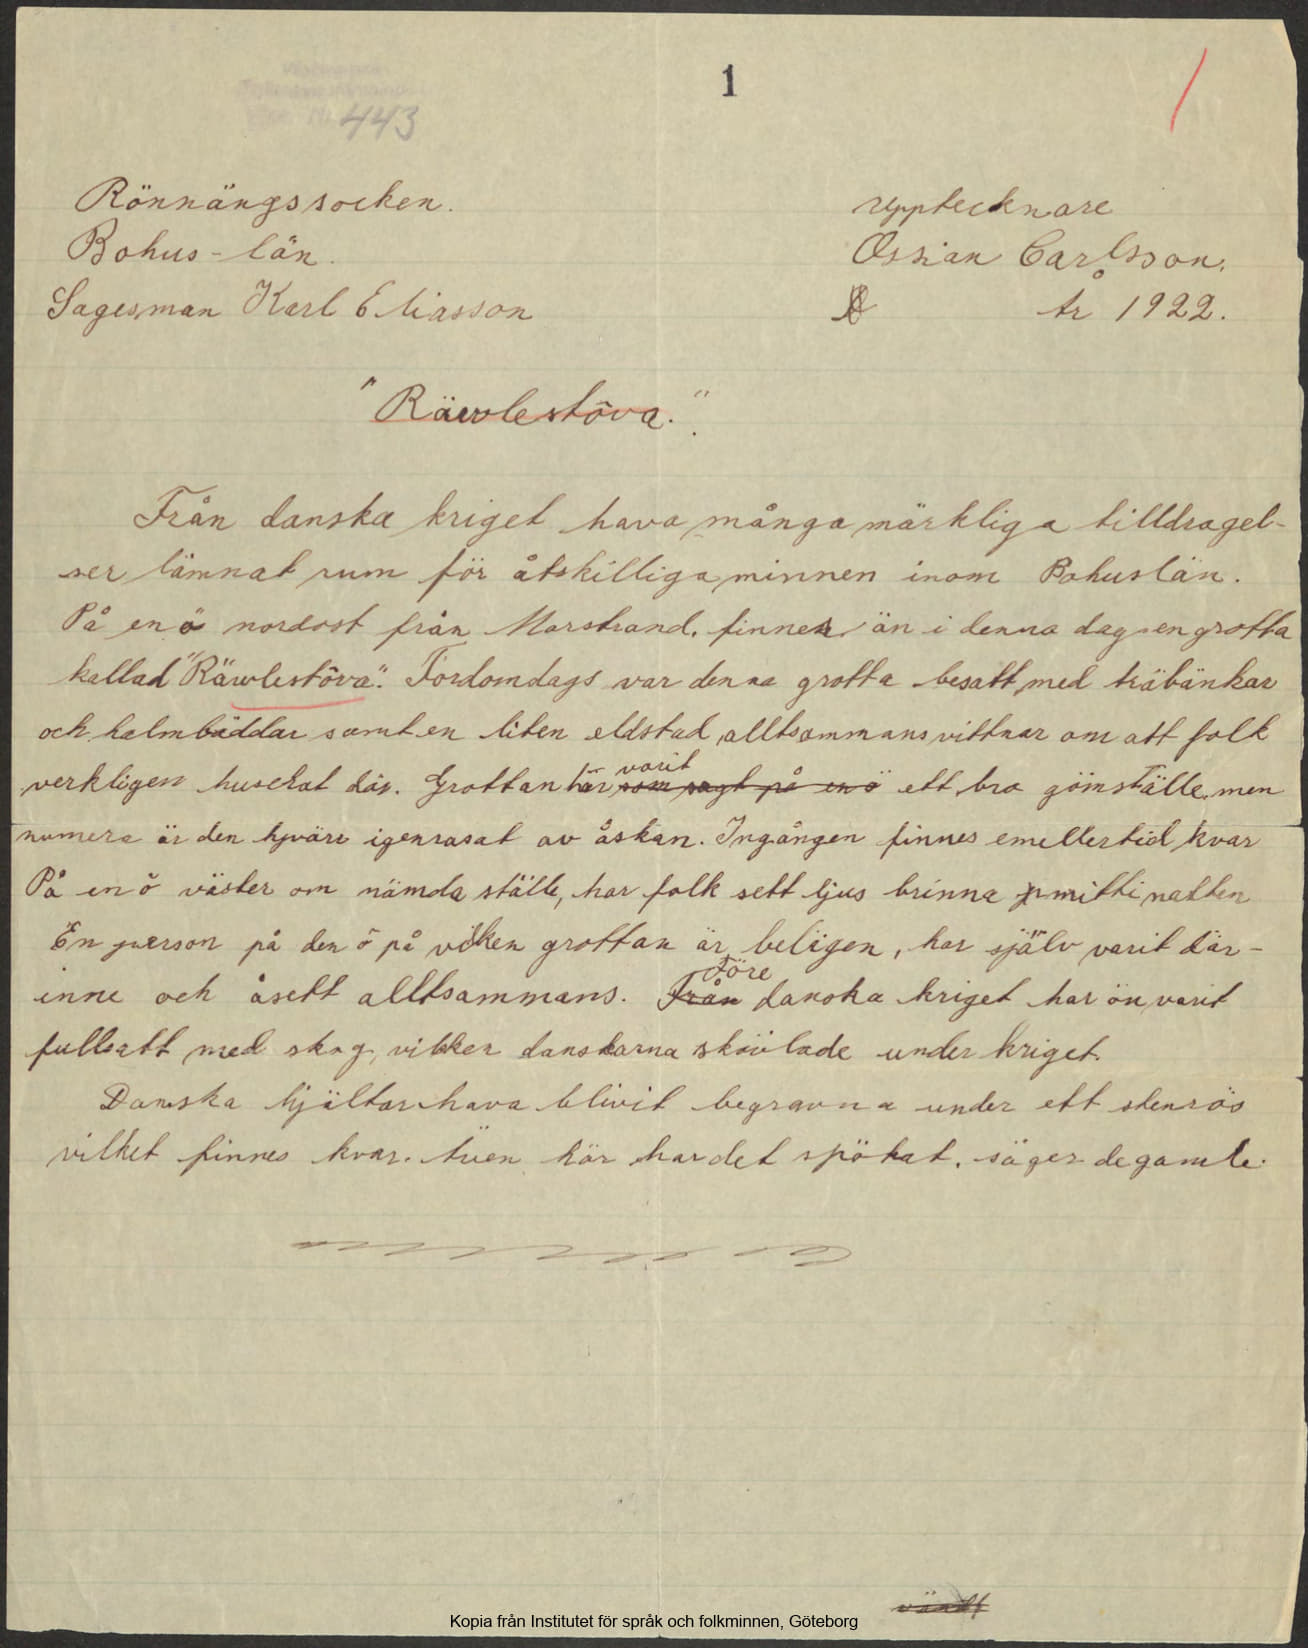 1
443
Rönnängs socken.
upptecknare
Bohus-län.
Ossian Carlsson.
Sagesman Karl Eliasson
År 1922.
"Räwlestôva."
Från danska kriget hava många märkliga tilldragel-
ser lämnat rum för åtskilliga minnen inom Bohuslän.
På en ö nordost från Marstrand. finnes än i denna dag en grotta
kallad "Räwlestôva". Fordomdags var denna grotta besatt med träbänkar
och halmbäddar samt en liten eldstad, alltsammans vittnar om att folk
varit
verkligen huserat där. Grottan har som sagt på en ö ett bra gömställe, men
numera är den tyvärr igenrasat av åskan. Ingången finnes emellertid kvar
På en ö väster om nämda ställe, har folk sett ljus brinna mitt i natten
En person på den ö på vilken grottan är belägen, har själv varit där-
Före
inne och åsett alltsammans. Från danska kriget har ön varit
fullsatt med skog, vilken danskarna skövlade under kriget.
Danska hjältar hava blivit begravna under ett stenrös
vilket finnes kvar. Även här har det spökat. säger de gamle.
vändt
Kopia från Institutet för språk och folkminnen, Göteborg